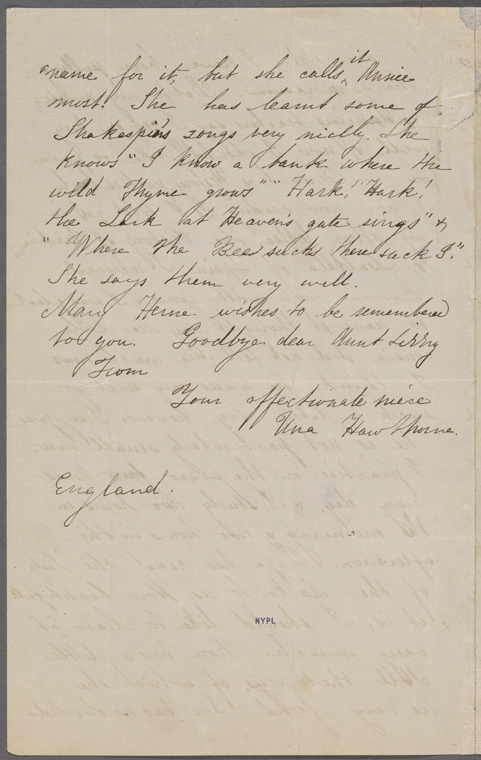 name for it, but she calls it Annie
most. She has learnt some of
Shakespire's songs very nicely. She
knows "I know a bank where the
wild Thyme grows" "Hark! Hark!
the Lark at Heaven's gate sings" &
"Where the Bee sucks there suck I."
She says them very well.
Mary Herne wishes to be remembered
to you. Goodbye dear Aunt Lizzy
From
Your affectionate niece
Una Hawthorne.
England.
NYPL